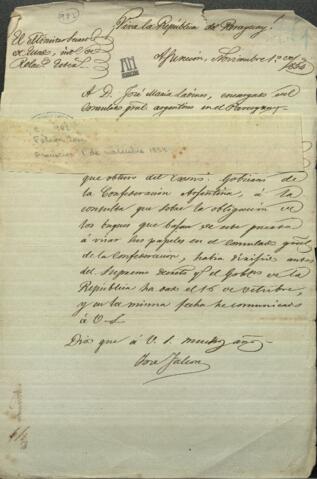 982
Viva la República del Paraguay!
Asuncion, Noviembre 1º de
1854
A D. José Maria encargado del
Consulado gral. argentino en el Paraguay
982
que obtuvo del Exmo. Gobierno de
la Confederacion Argentina, á la
consulta que sobre la obligacion de
los buques que bajan de este puerto
á visar sus papeles en el Consulado gral.
de la Confederacion, habia dirijido antes
del Supremo decreto qe. el Gobno. de la
República ha dado el 15 de Octubre,
y en la misma fecha he comunicado
á V. S.
Dios gue. á V. S. muchos años
José Falcon